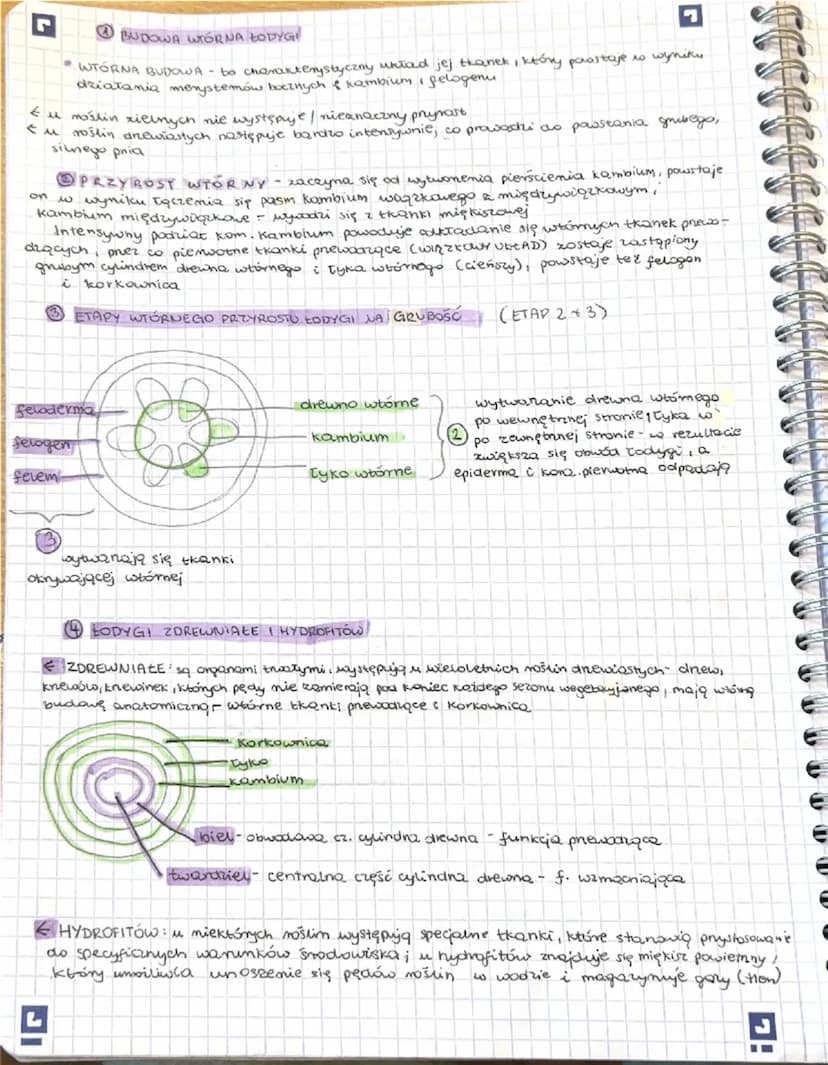 ① BUDOWA WTÓRNA ŁODYGI
• WTÓRNA BUDOWA - to charakterystyczny układ jej tkanek, który powstaje w wyniku
działania merystemów bocznych kambium i felogenu
← u roślin zielnych nie występuje / nieznaczny przyrost
← u roślin drzewiastych następuje bardzo intensywnie, co prowadzi do powstania grubego,
silnego pnia
② PRZYROST WTÓRNY - zaczyna się od wytworzenia pierścienia kambium, powstaje
on w wyniku łączenia się pasm kambium wiązkowego z międzywiązkowym,
kambium międzywiązkowe - wywodzi się z tkanki miękiszowej
Intensywny podział kom. kambium powoduje odkładanie się wtórnych tkanek przewo-
dzących, przez co pierwotne tkanki przewodzące (WIĄZKOWY UKŁAD) zostaje zastąpiony
grubym cylindrem drewna wtórnego i łyka wtórnego (cieńszy), powstaje też felogen
i korkownica
③ ETAPY WTÓRNEGO PRZYROSTU ŁODYGI NA GRUBOŚĆ (ETAP 2 i 3)
feloderma
felogen
felem
drewno wtórne
kambium
łyko wtórne
② wytwarzanie drewna wtórnego
po wewnętrznej stronie, łyka w
po zewnętrznej stronie - w rezultacie
zwiększa się obwód łodygi, a
epiderma i kora pierwotna odpadają
③
wytwarzają się tkanki
okrywającej wtórnej
④ ŁODYGI ZDREWNIAŁE I HYDROFITÓW
← ZDREWNIAŁE: są organami trwałymi, występują u wieloletnich roślin drzewiastych - drzew,
krzewów, krzewinek, których pędy nie zamierają pod koniec każdego sezonu wegetacyjnego, mają wtórną
budowę anatomiczną - wtórne tkanki przewodzące i korkownica
korkownica
łyko
kambium
biel - obwodowa cz. cylindra drewna - funkcja przewodząca
twardziel - centralna część cylindra drewna - f. wzmacniająca
← HYDROFITÓW: u niektórych roślin występują specjalne tkanki, które stanowią przystosowanie
do specyficznych warunków środowiska; u hydrofitów znajduje się miękisz powietrzny,
który umożliwia unoszenie się pędów roślin w wodzie i magazynuje gazy (tlen)